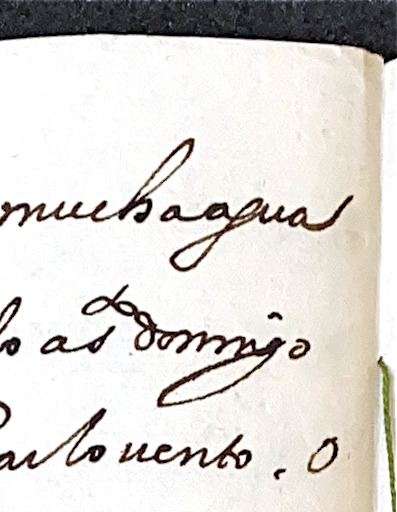 muchaagua
lo as.to domingo
Barlovento. O